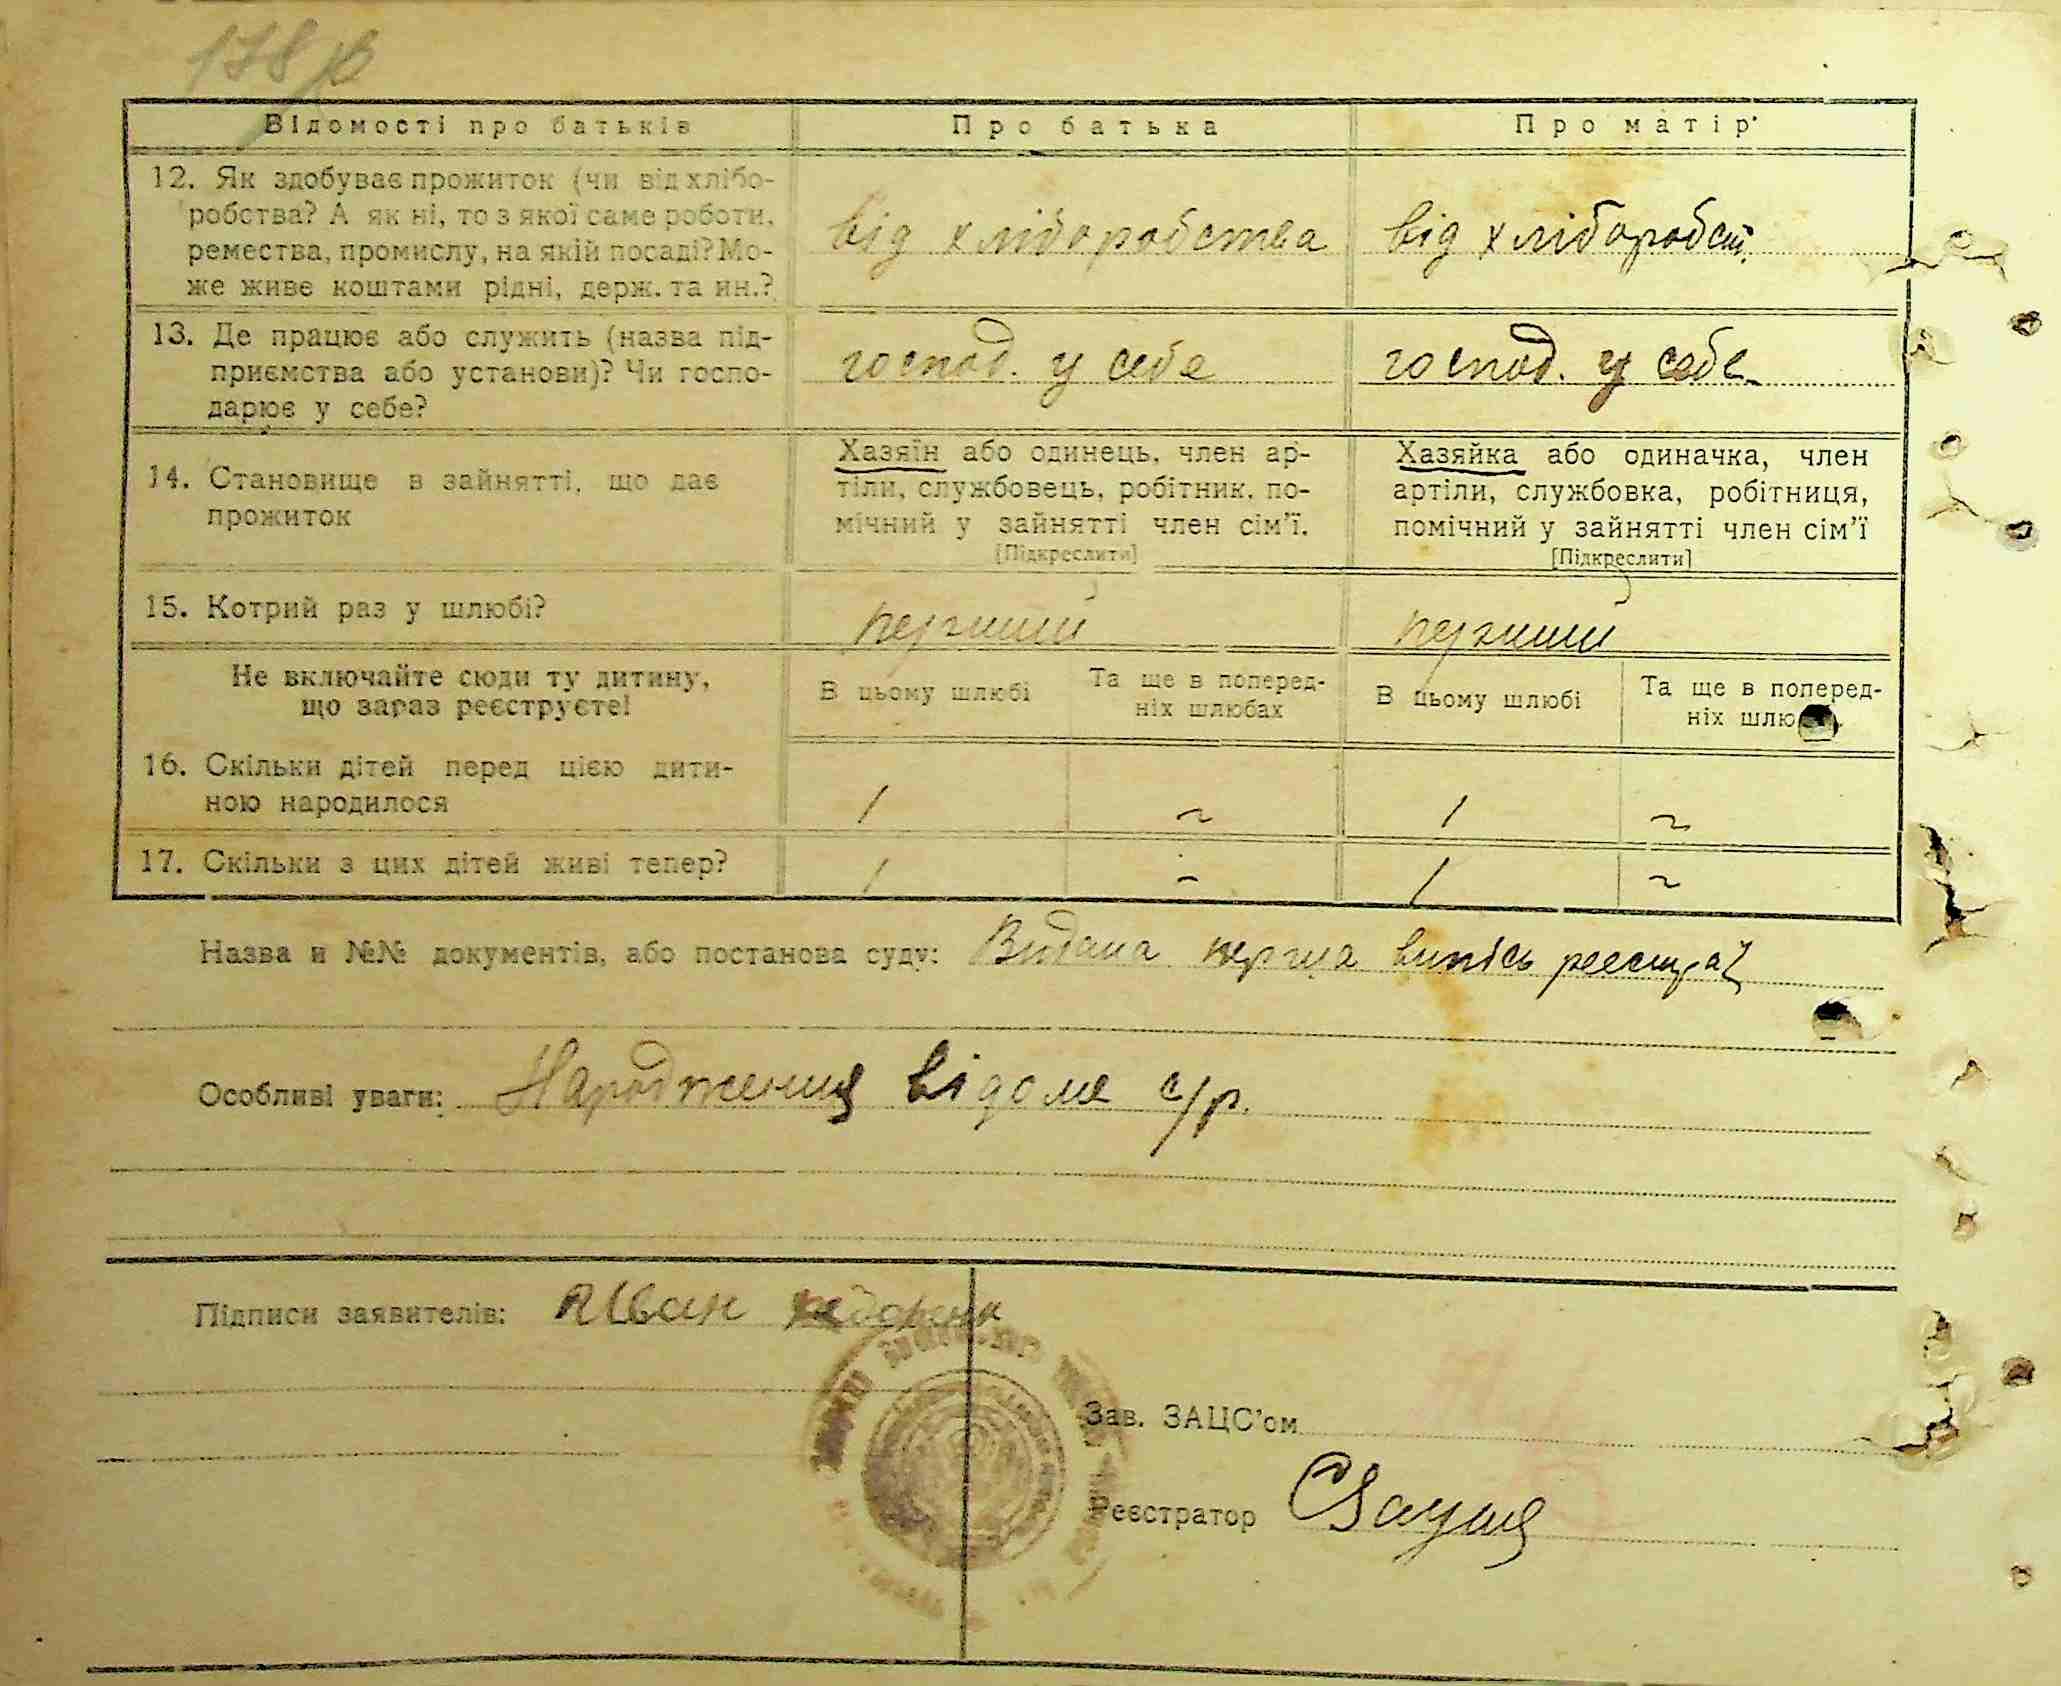 178 зв
Відомості про батьків
Про батька
Про матір
12. Як здобуває прожиток (чи від хлібо-
робства? А як ні, то з якої саме роботи,
ремества, промислу, на якій посаді? Мо-
же живе коштами рідні, держ. та ин.?
від хліборобства
від хліборобст.
13. Де працює або служить (назва під-
приємства або установи)? Чи госпо-
дарює у себе?
господ. у себе
господ. у себе
14. Становище в зайнятті, що дає
прожиток
Хазяїн або одинець, член ар-
тіли, службовець, робітник, по-
мічний у зайнятті член сім'ї.
[Підкреслити]
Хазяйка або одиначка, член
артіли, службовка, робітниця,
помічний у зайнятті член сім'ї
[Підкреслити]
15. Котрий раз у шлюбі?
перший
перший
Не включайте сюди ту дитину,
що зараз реєструєте!
В цьому шлюбі
Та ще в поперед-
ніх шлюбах
В цьому шлюбі
Та ще в поперед-
ніх шлю
16. Скільки дітей перед цією дити-
ною народилося
1 ~ 1 ~
17. Скільки з цих дітей живі тепер?
1 - 1 ~
Назва и №№ документів, або постанова суду: Видана перша випісь реестрац
Особливі уваги: Народження відоме с/р.
Підписи заявителів: Иван
Зав. ЗАЦС'ом
Реєстратор